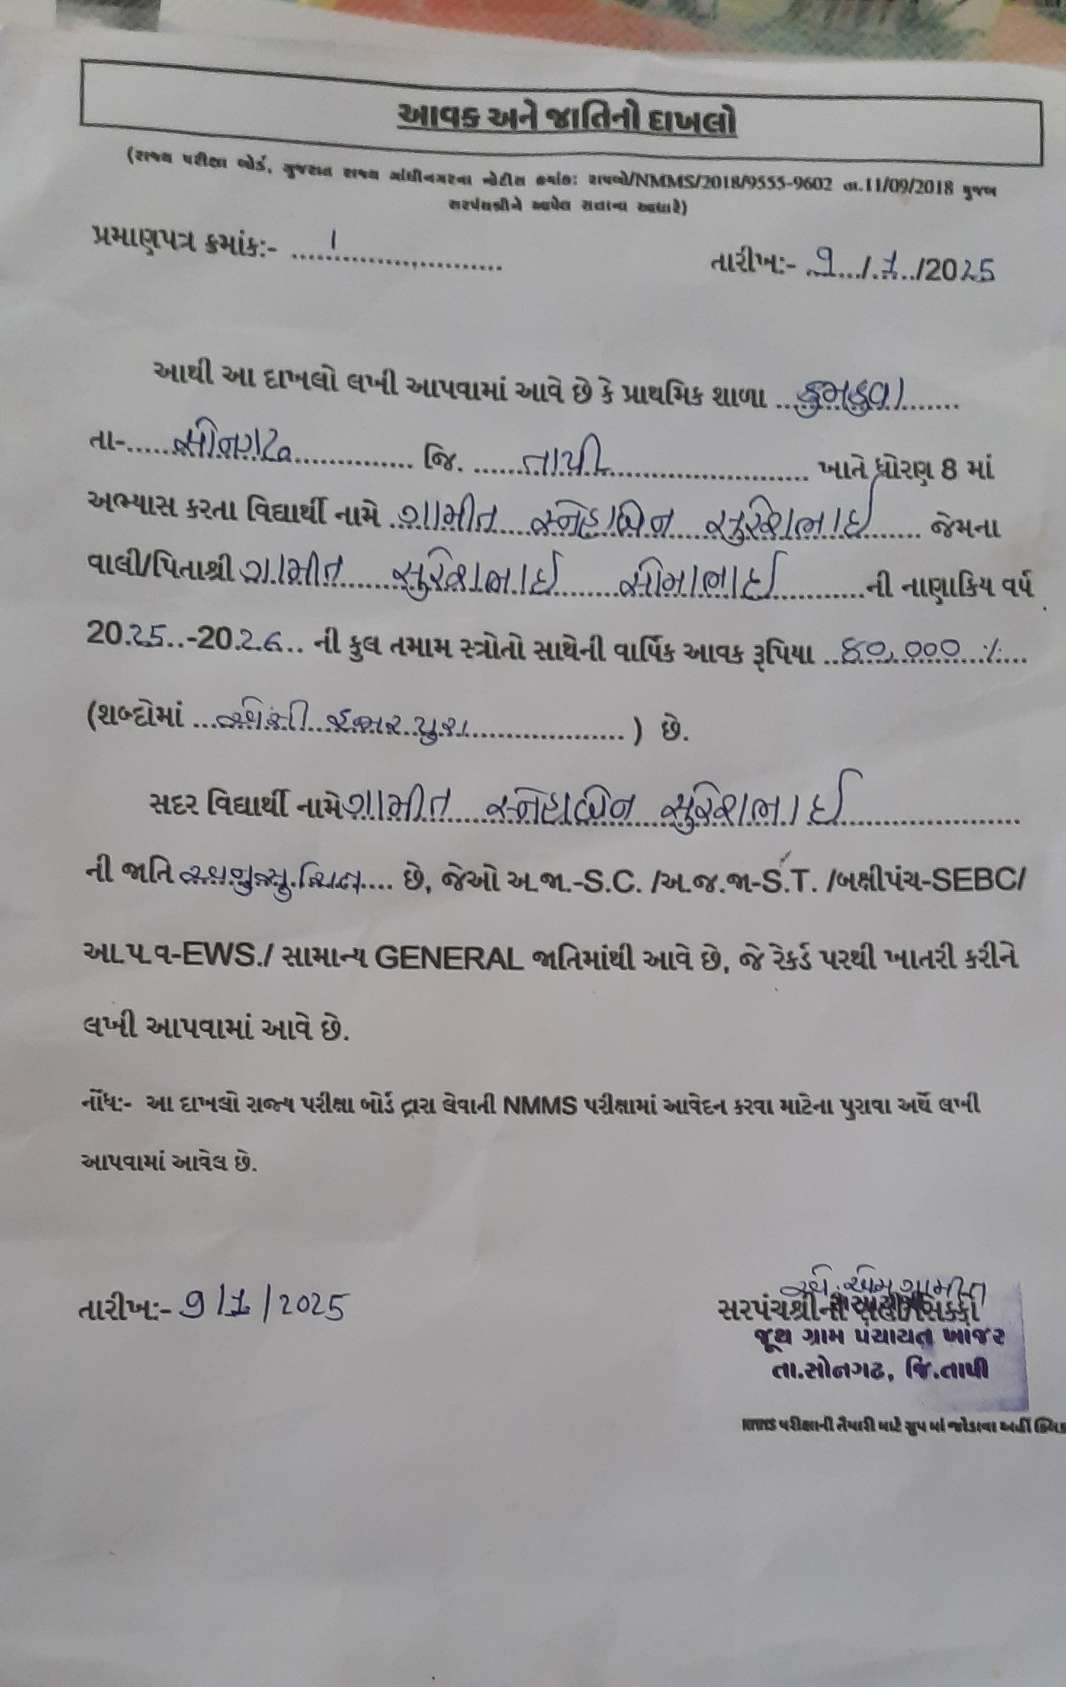 આવક અને જાતિનો દાખલો
(રાજ્ય પરીક્ષા બોર્ડ, ગુજરાત રાજ્ય ગાંધીનગરના નોટીસ ક્રમાંક: રાપબો/NMMS/2018/9555-9602 તા.11/09/2018 મુજબ
સરપંચશ્રીને આપેલ સત્તાના આધારે)
પ્રમાણપત્ર ક્રમાંક:- ...1...
તારીખ:- 9../.1../2025
આથી આ દાખલો લખી આપવામાં આવે છે કે પ્રાથમિક શાળા ..કુમકુવા......
તા-.....સોનગઢ............. જિ. ......તાપી..................... ખાતે ધોરણ 8 માં
અભ્યાસ કરતા વિદ્યાર્થી નામે .ગામીત.... સ્નેહાબેન સુરેશભાઇ..... જેમના
વાલી/પિતાશ્રી ગામીત......સુરેશભાઇ......સોમાભાઇ..........ની નાણાકિય વર્ષ
20.25..-20.26.. ની કુલ તમામ સ્ત્રોતો સાથેની વાર્ષિક આવક રૂપિયા ..60,000./.....
(શબ્દોમાં ... હજાર પુરા.................) છે.
સદર વિદ્યાર્થી નામે ગામીત સ્નેહાબેન સુરેશભાઇ..................
ની જાતિ .... છે, જેઓ અ.જા.-S.C. /અ.જ.જા-S.T. /બક્ષીપંચ-SEBC/
આ.પ.વ-EWS./ સામાન્ય GENERAL જાતિમાંથી આવે છે, જે રેકર્ડ પરથી ખાતરી કરીને
લખી આપવામાં આવે છે.
નોંધ:- આ દાખલો રાજ્ય પરીક્ષા બોર્ડ દ્વારા લેવાની NMMS પરીક્ષામાં આવેદન કરવા માટેના પુરાવા અર્થે લખી
આપવામાં આવેલ છે.
તારીખ:- 9/1/2025
સરપંચશ્રીની સહી/સિક્કો
જૂથ ગ્રામ પંચાયત ખાંજર
તા.સોનગઢ, જિ.તાપી
NMMS પરીક્ષાની તૈયારી માટે ગ્રુપ માં જોડાવા અહીં ક્લિક